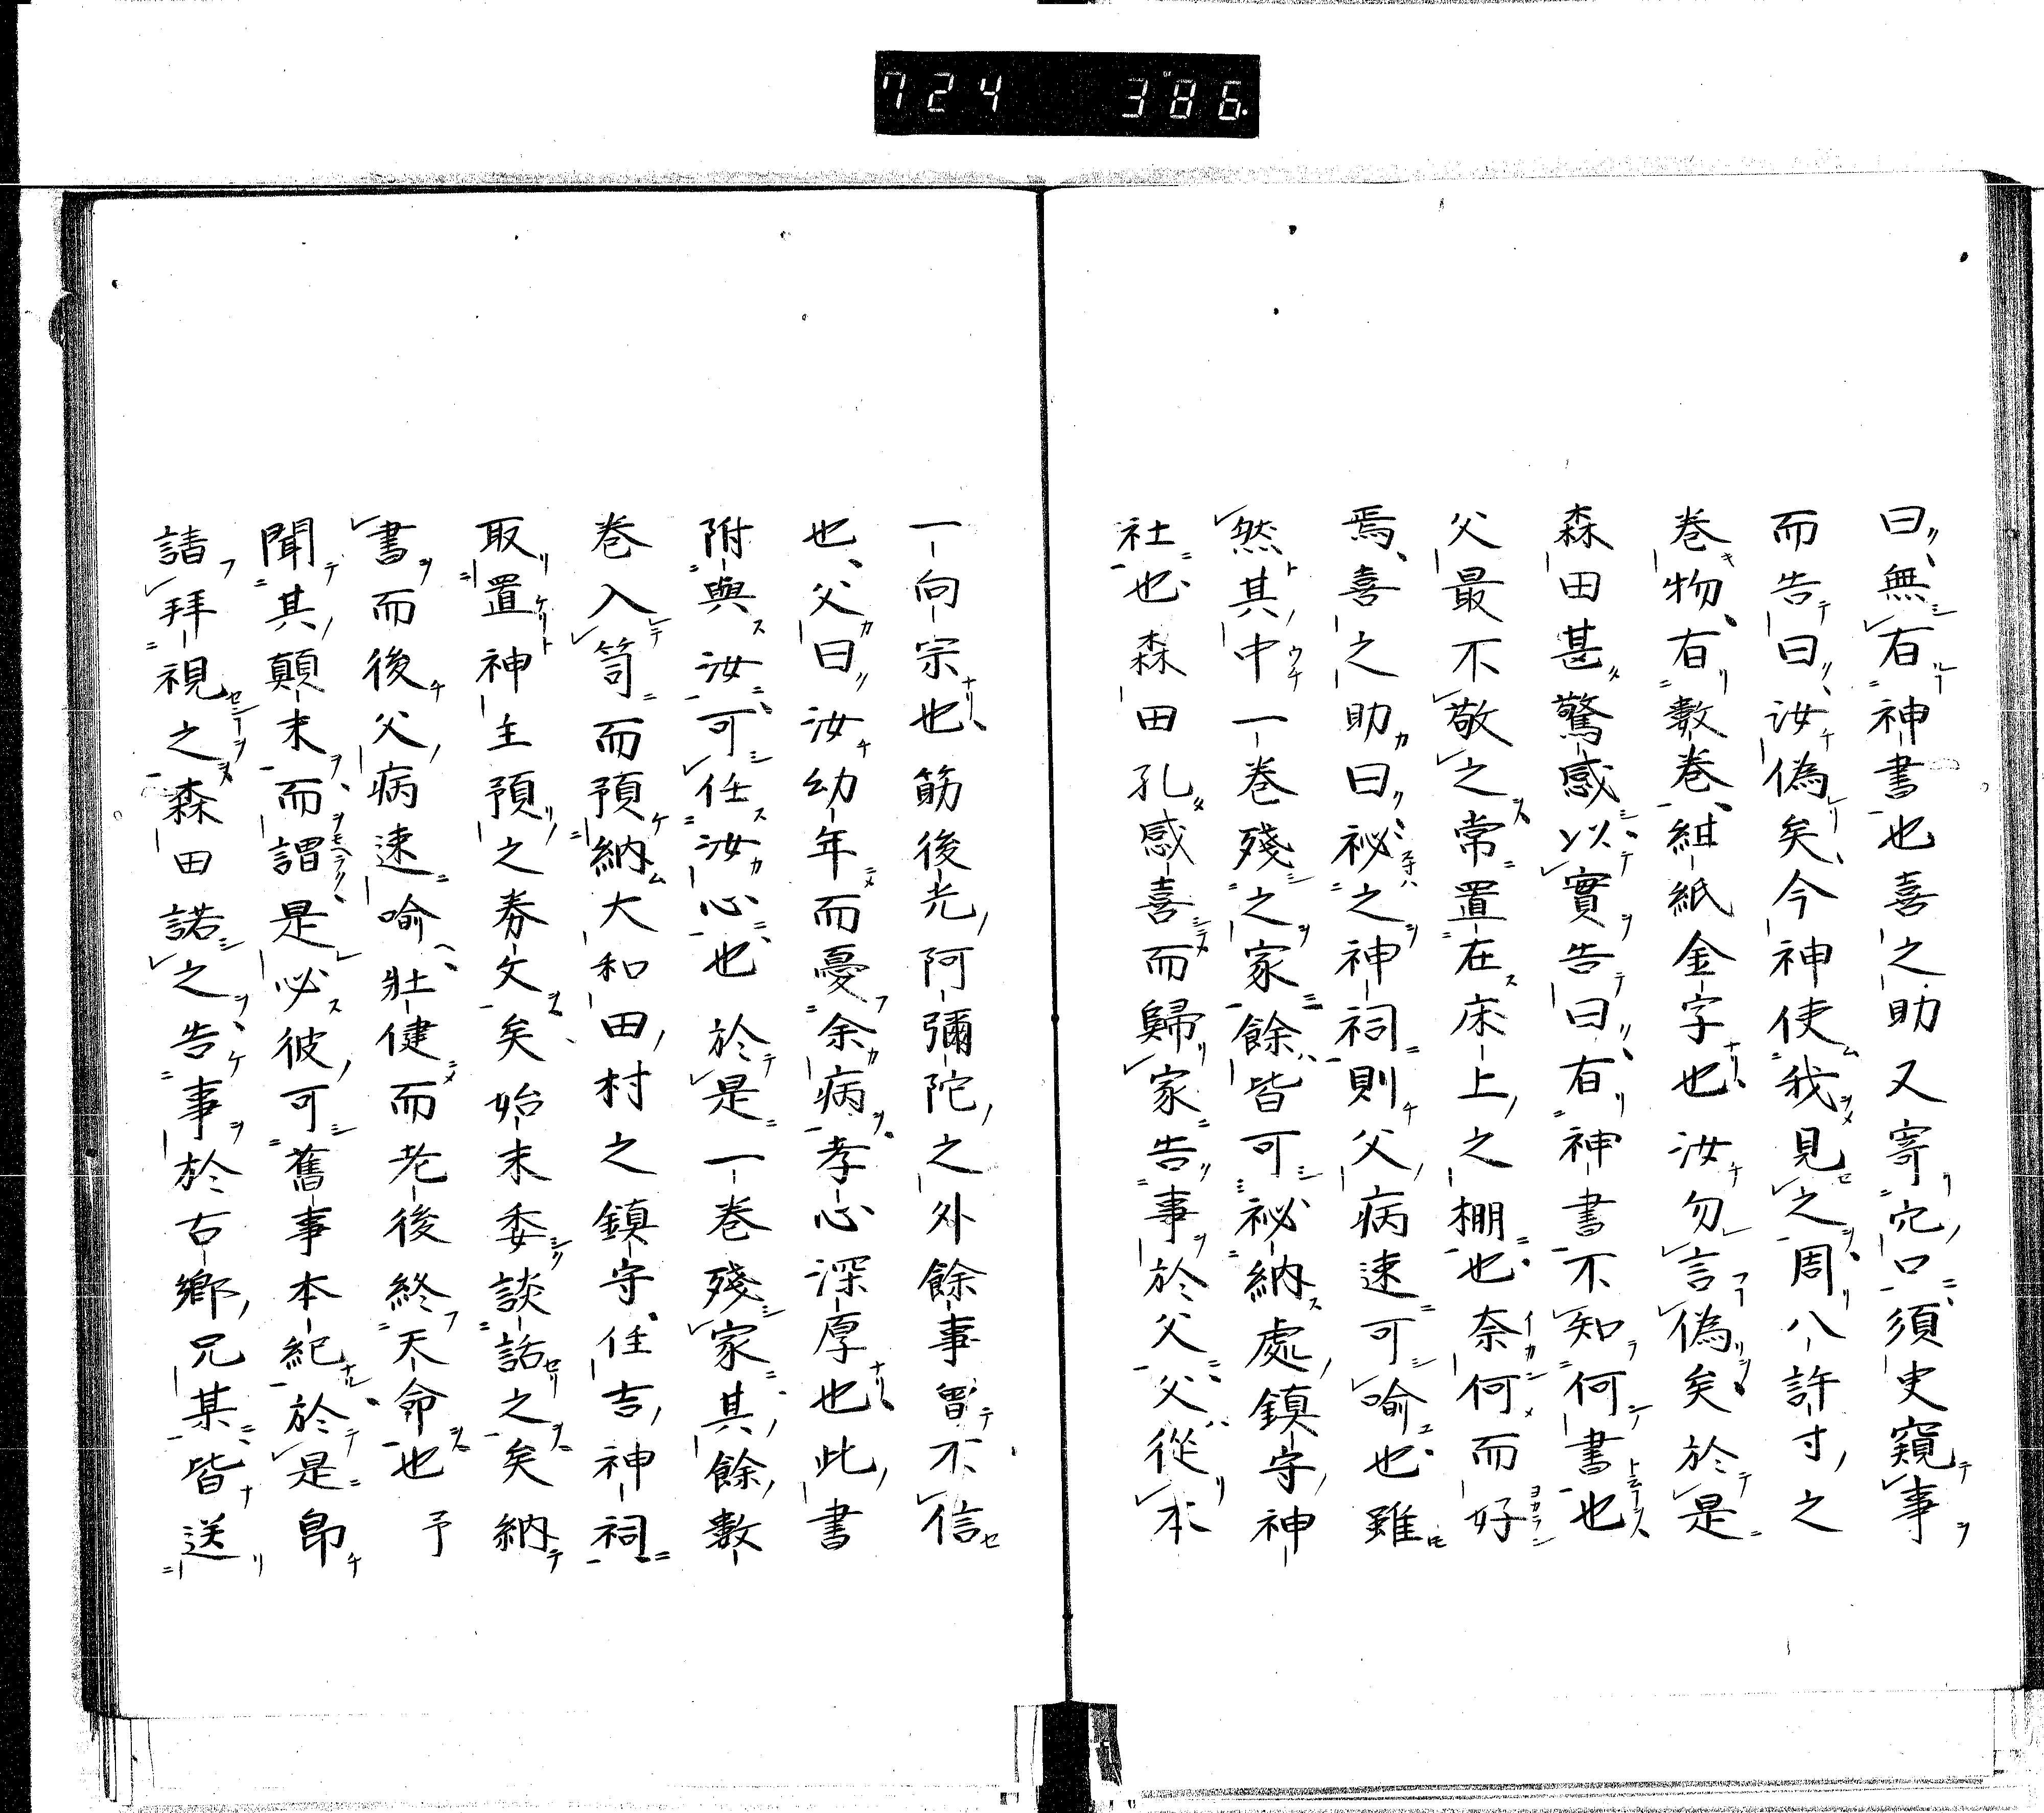 724 386
曰無有神書也喜之助又寄穴口須史窺事
而告曰汝偽矣今神使我見之周八許寸之
巻物有數巻紺紙金字也汝勿言偽矣於是
森田甚驚感以實告曰有神書不知何書也
父最不敬之常置在床上之棚也奈何而好
焉喜之助曰祕之神祠則父病速可喻也雖
然其中一巻殘之家餘皆可祕納處鎮守神
社也森田孔感喜而歸家告事於父父從本
一向宗也筋後光阿彌陀之外餘事曽不信
也父曰汝幼年而憂余病孝心深厚也此書
附與汝可任汝心也於是一巻殘家其餘數
巻入笥而預納大和田村之鎮守住吉神祠
取置神主預之券文矣始末委談話之矣納
書而後父病速喻壯健而老後終天命也予
聞其顛末而謂是必彼可舊事本紀於是即
請拜視之森田諾之告事於古鄉兄某皆送